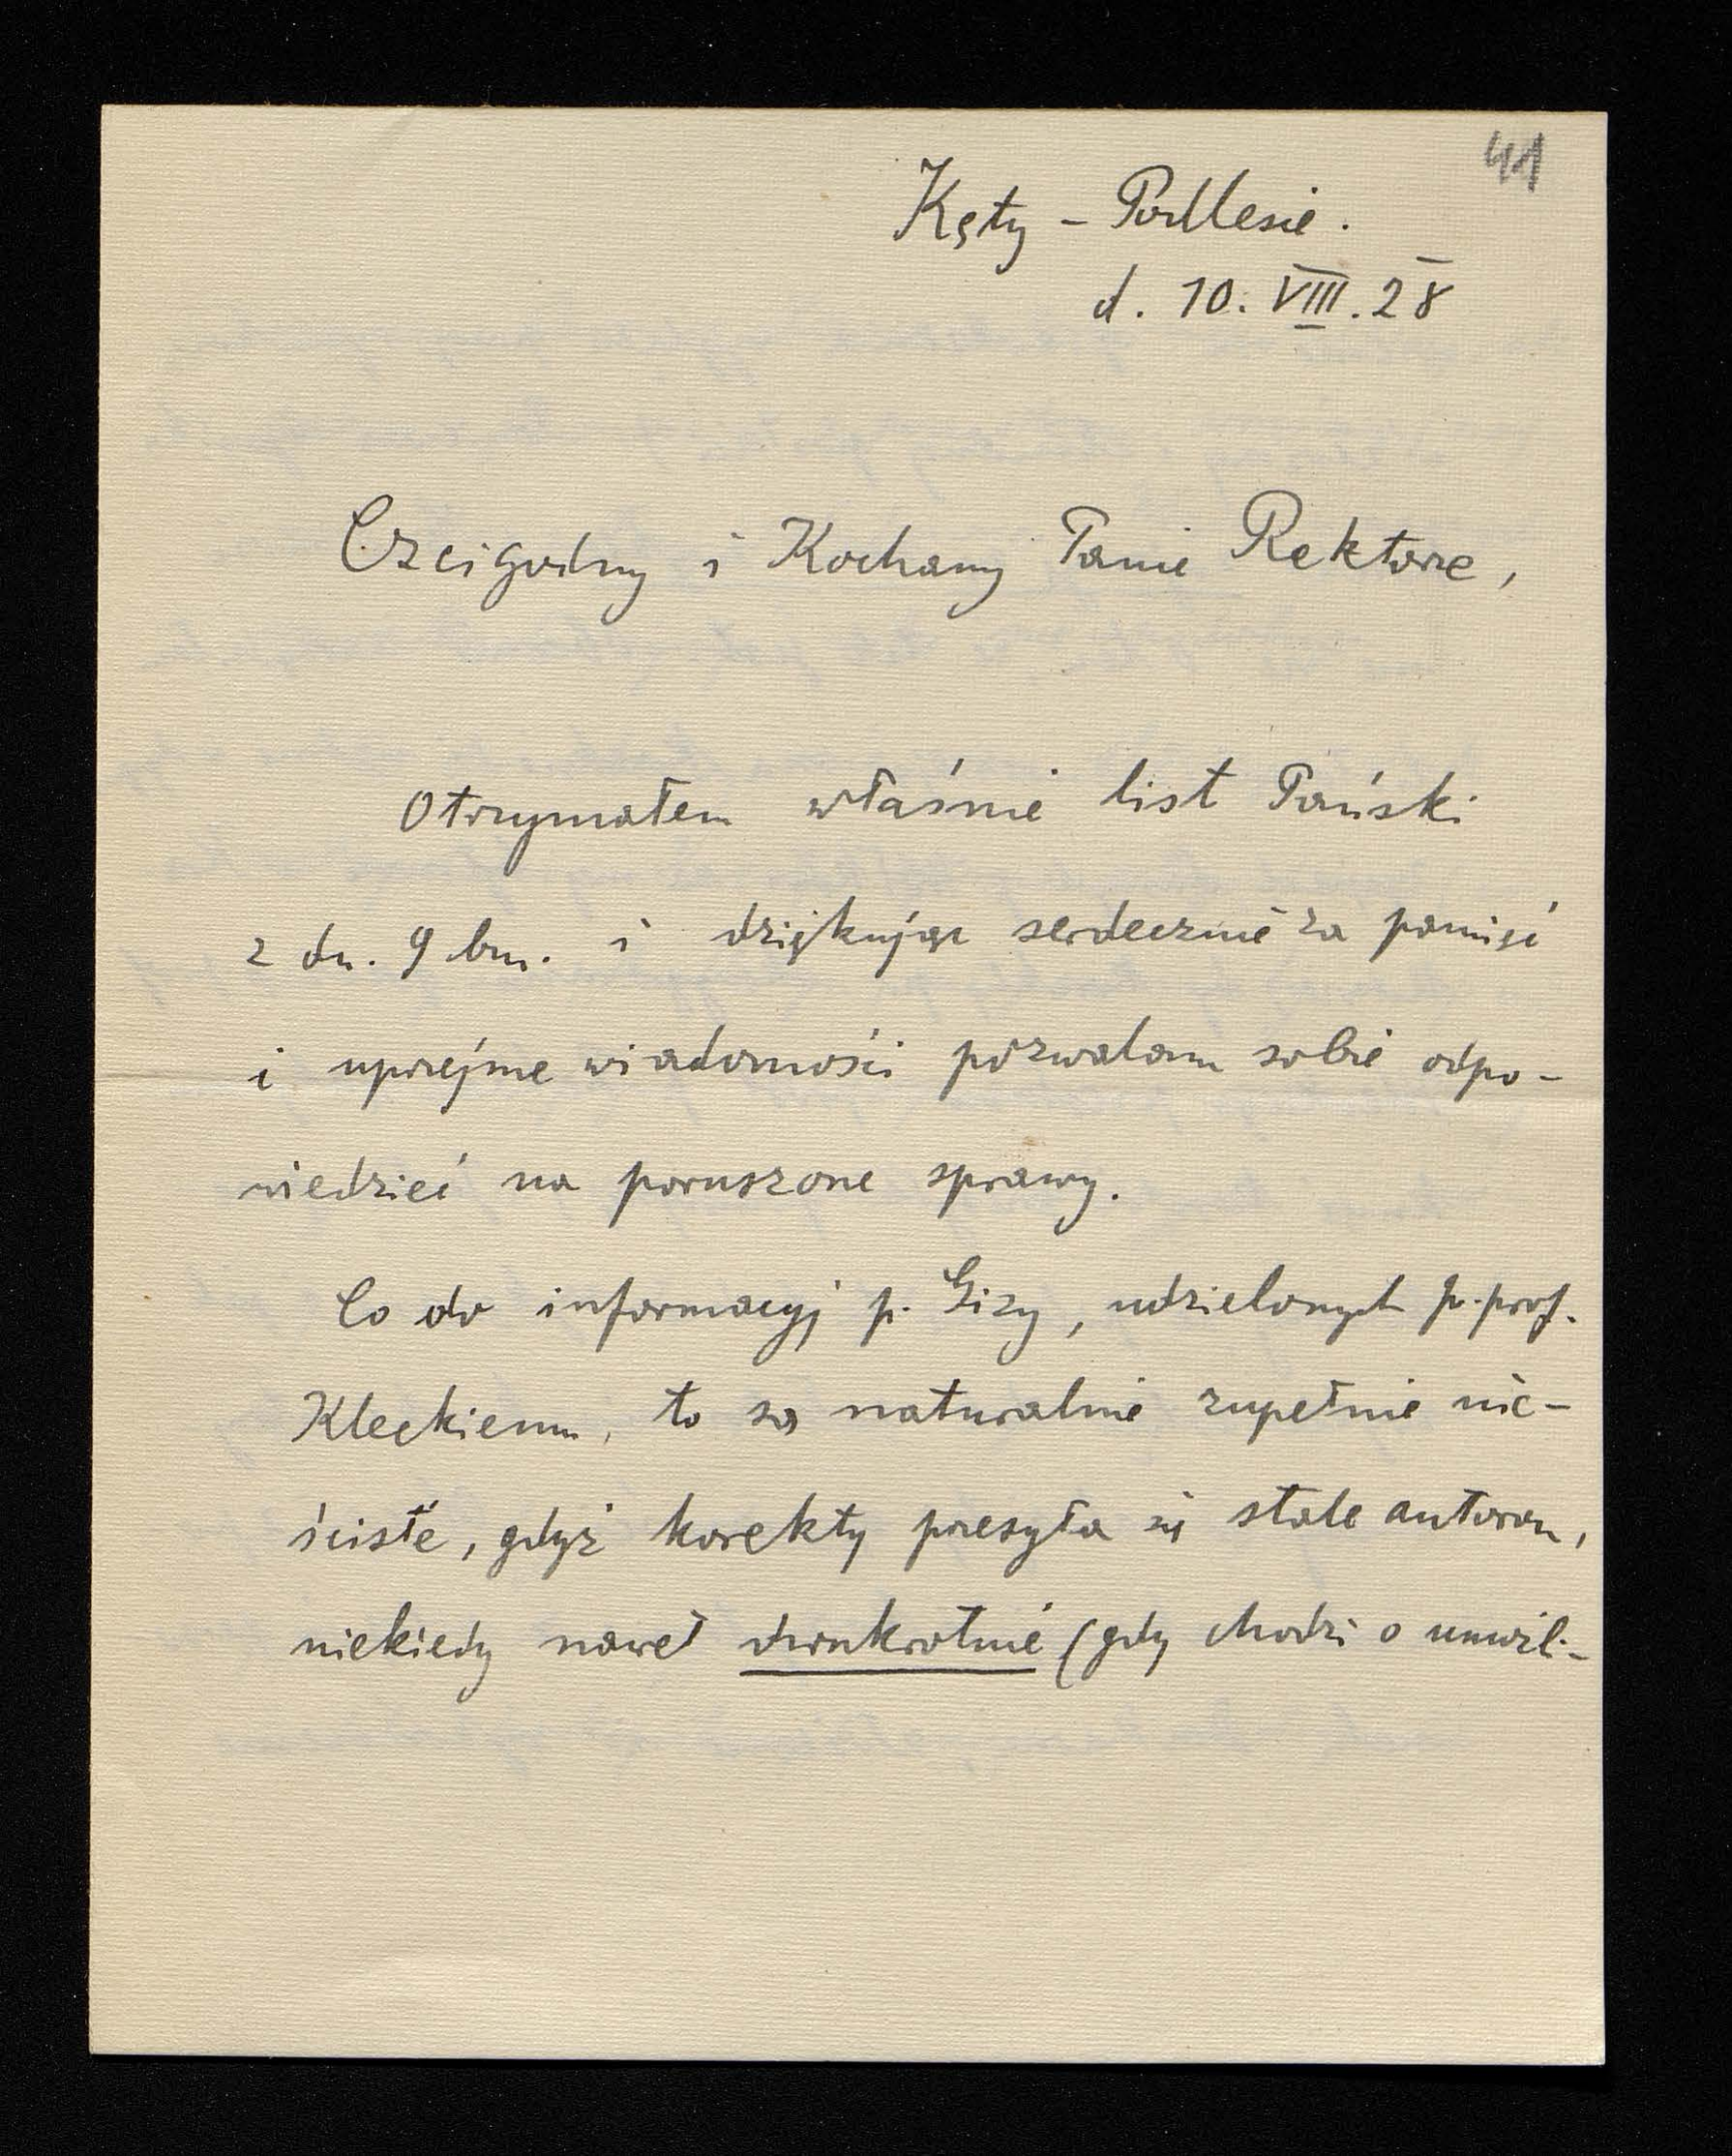 41
Kęty - Podlesie.
d. 10. VIII. 28
Czcigodny i Kochany Panie Rektorze,
Otrzymałem właśnie list Pański
z dn. 9 bm. i dziękując serdecznie za pamięć
i uprzejme wiadomości pozwalam sobie odpo-
wiedzieć na poruszone sprawy.
Co do informacyj p. Gizy, udzielonych p. prof.
Kleckiemu, to są naturalnie zupełnie nie-
ścisłe, gdyż korekty przesyła się stale autorom,
niekiedy nawet dwukrotnie (gdy chodzi o